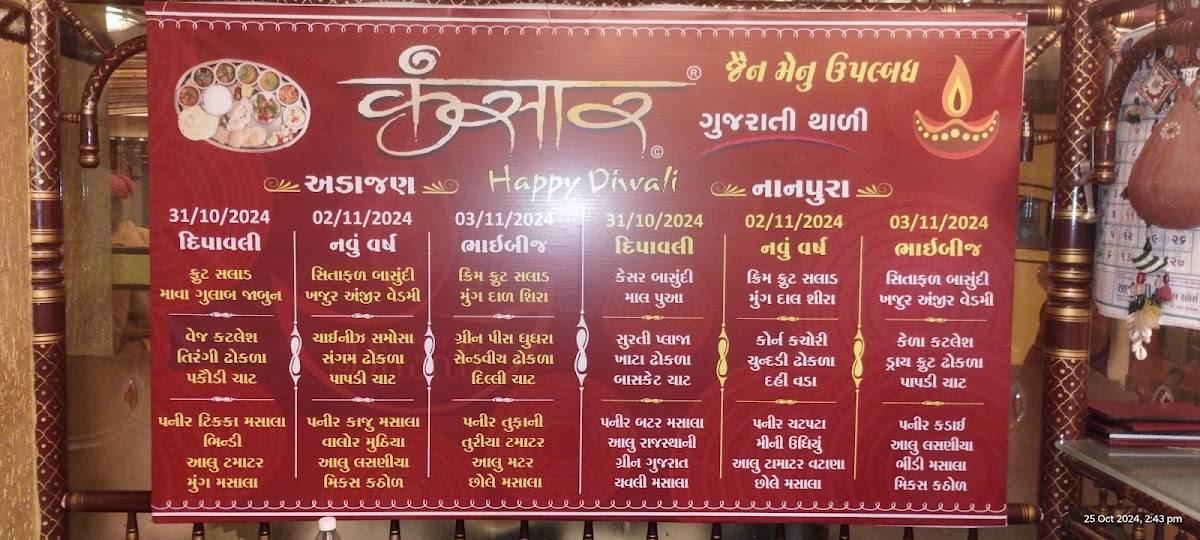 कंसार ®
©
જૈન મેનુ ઉપલબ્ધ
ગુજરાતી થાળી
Happy Diwali
અડાજણ
31/10/2024
દિપાવલી
ફ્રુટ સલાડ
માવા ગુલાબ જાબુન
વેજ કટલેશ
તિરંગી ઢોકળા
પકૌડી ચાટ
પનીર ટિકકા મસાલા
ભિન્ડી
આલુ ટમાટર
મુંગ મસાલા
02/11/2024
નવું વર્ષ
સિતાફળ બાસુંદી
ખજુર અંજીર વેડમી
ચાઈનીઝ સમોસા
સંગમ ઢોકળા
પાપડી ચાટ
પનીર કાજુ મસાલા
વાલોર મુઠિયા
આલુ લસણીયા
મિકસ કઠોળ
03/11/2024
ભાઈબીજ
ક્રિમ ફ્રુટ સલાડ
મુંગ દાળ શિરા
ગ્રીન પીસ ઘુઘરા
સેન્ડવીચ ઢોકળા
દિલ્લી ચાટ
પનીર તુફાની
તુરીયા ટમાટર
આલુ મટર
છોલે મસાલા
નાનપુરા
31/10/2024
દિપાવલી
કેસર બાસુંદી
માલ પુઆ
સુરતી પ્લાજા
ખાટા ઢોકળા
બાસકેટ ચાટ
પનીર બટર મસાલા
આલુ રાજસ્થાની
ગ્રીન ગુજરાત
ચવલી મસાલા
02/11/2024
નવું વર્ષ
ક્રિમ ફ્રુટ સલાડ
મુંગ દાલ શીરા
કોર્ન કચોરી
ચુન્દડી ઢોકળા
દહી વડા
પનીર ચટપટા
મીની ઉંધિયું
આલુ ટામાટર વટાણા
છોલે મસાલા
03/11/2024
ભાઈબીજ
સિતાફળ બાસુંદી
ખજુર અંજીર વેડમી
કેળા કટલેશ
ડ્રાય ફ્રુટ ઢોકળા
પાપડી ચાટ
પનીર કડાઈ
આલુ લસણીયા
ભીંડી મસાલા
મિકસ કઠોળ
25 Oct 2024, 2:43 pm